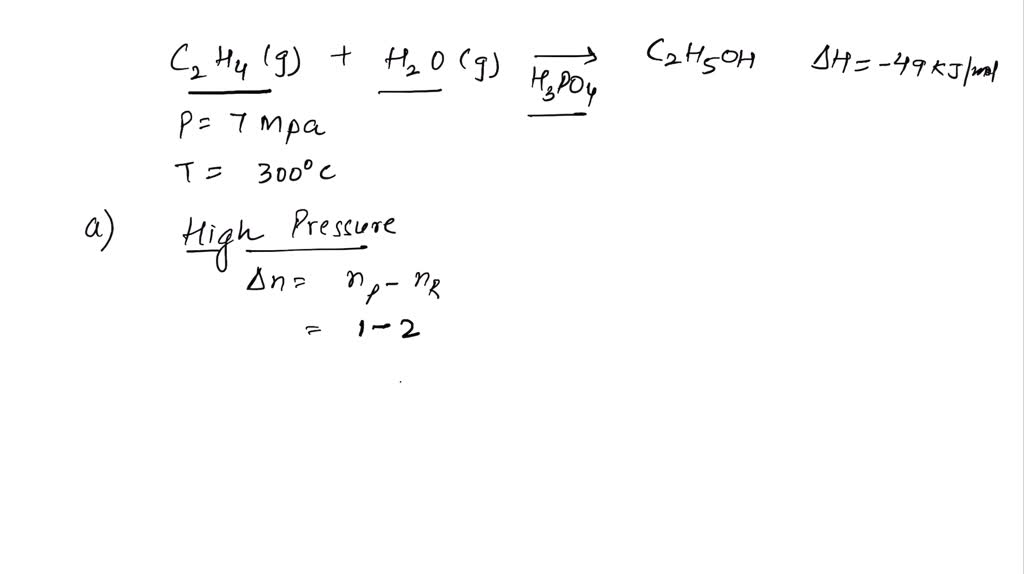 C₂H₄ (g) + H₂O (g) ⟶ H₃PO₄ C₂H₅OH ΔH = -49 KJ/mol
P = 7 Mpa
T = 300°C
a) High Pressure
Δn = nₚ - n_R
= 1 - 2